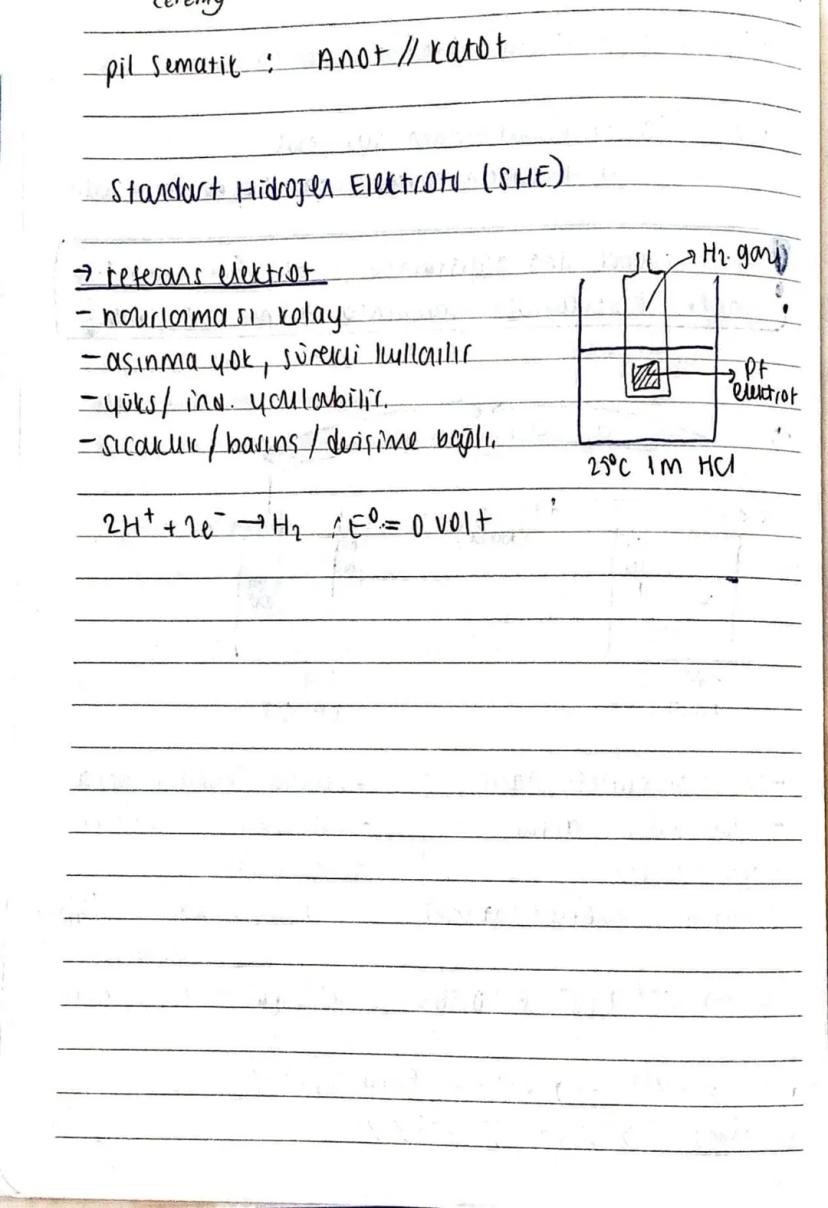 pil Şematik : Anot // Katot
Standart Hidrojen Elektrotu (SHE)
→ referans elektrot
- hazırlanması kolay
- aşınma yok, sürekli kullanılır
- yüks / ind. yapılabilir.
- sıcaklık / basınç / derişime bağlı.
→ H₂ gazı
→ Pt elektrot
25°C 1M HCl
2H⁺ + 2e⁻ → H₂ E⁰ = 0 volt